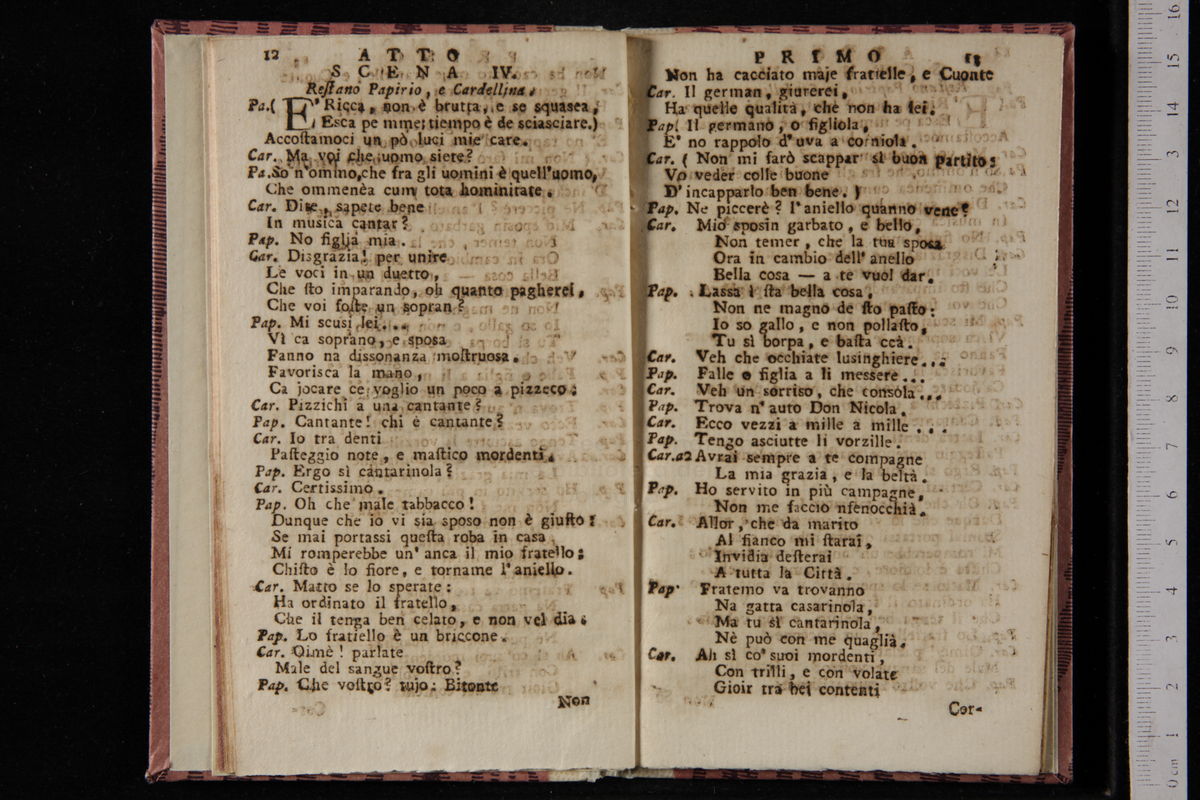 12 ATTO
SCENA IV.
Restano Papirio, e Cardellina.
Pa.( E' Ricca, non è brutta, e se squasea,
Esca pe mme; tiempo è de sciasciare.)
Accostamoci un pò luci mie care.
Car. Ma voi che uomo siete?
Pa. So' n'ommo, che fra gli uomini è quell'uomo,
Che ommenèa cum tota hominitate.
Car. Dite, sapete bene
In musica cantar?
Pap. No figlia mia.
Car. Disgrazia! per unire
Le voci in un duetto,
Che sto imparando, oh quanto pagherei,
Che voi foste un sopran?
Pap. Mi scusi lei...
Vi ca soprano, e sposa
Fanno na dissonanza mostruosa.
Favorisca la mano,
Ca jocare ce voglio un poco a pizzeco:
Car. Pizzichi a una cantante?
Pap. Cantante! chi è cantante?
Car. Io tra denti
Pasteggio note, e mastico mordenti.
Pap. Ergo sì cantarinola?
Car. Certissimo.
Pap. Oh che male tabbacco!
Dunque che io vi sia sposo non è giusto:
Se mai portassi questa roba in casa
Mi romperebbe un' anca il mio fratello;
Chisto è lo fiore, e torname l'aniello.
Car. Matto se lo sperate:
Ha ordinato il fratello,
Che il tenga ben celato, e non vel dia.
Pap. Lo fratiello è un briccone.
Car. Oimè! parlate
Male del sangue vostro?
Pap. Che vostro? tujo: Bitonte
Non
PRIMO 13
Non ha cacciato maje fratielle, e Cuonte
Car. Il german, giurerei,
Ha quelle qualità, che non ha lei.
Pap. Il germano, o figliola,
E' no rappolo d'uva a corniola.
Car. ( Non mi farò scappar sì buon partito:
Vo veder colle buone
D'incapparlo ben bene. )
Pap. Ne piccerè? l'aniello quanno vene?
Car. Mio sposin garbato, e bello,
Non temer, che la tua sposa
Ora in cambio dell' anello
Bella cosa — a te vuol dar.
Pap. Lassa i sta bella cosa,
Non ne magno de sto pasto:
Io so gallo, e non pollasto,
Tu sì borpa, e basta ccà.
Car. Veh che occhiate lusinghiere...
Pap. Falle o figlia a li messere...
Car. Veh un sorriso, che consola...
Pap. Trova n'auto Don Nicola.
Car. Ecco vezzi a mille a mille...
Pap. Tengo asciutte li vorzille.
Car. a2 Avrai sempre a te compagne
La mia grazia, e la beltà.
Pap. Ho servito in più campagne,
Non me faccio nfenocchià.
Car. Allor, che da marito
Al fianco mi starai,
Invidia desterai
A tutta la Città.
Pap. Fratemo va trovanno
Na gatta casarinola,
Ma tu sì cantarinola,
Nè può con me quaglià.
Car. Ah sì co' suoi mordenti,
Con trilli, e con volate
Gioir tra bei contenti
Cor-